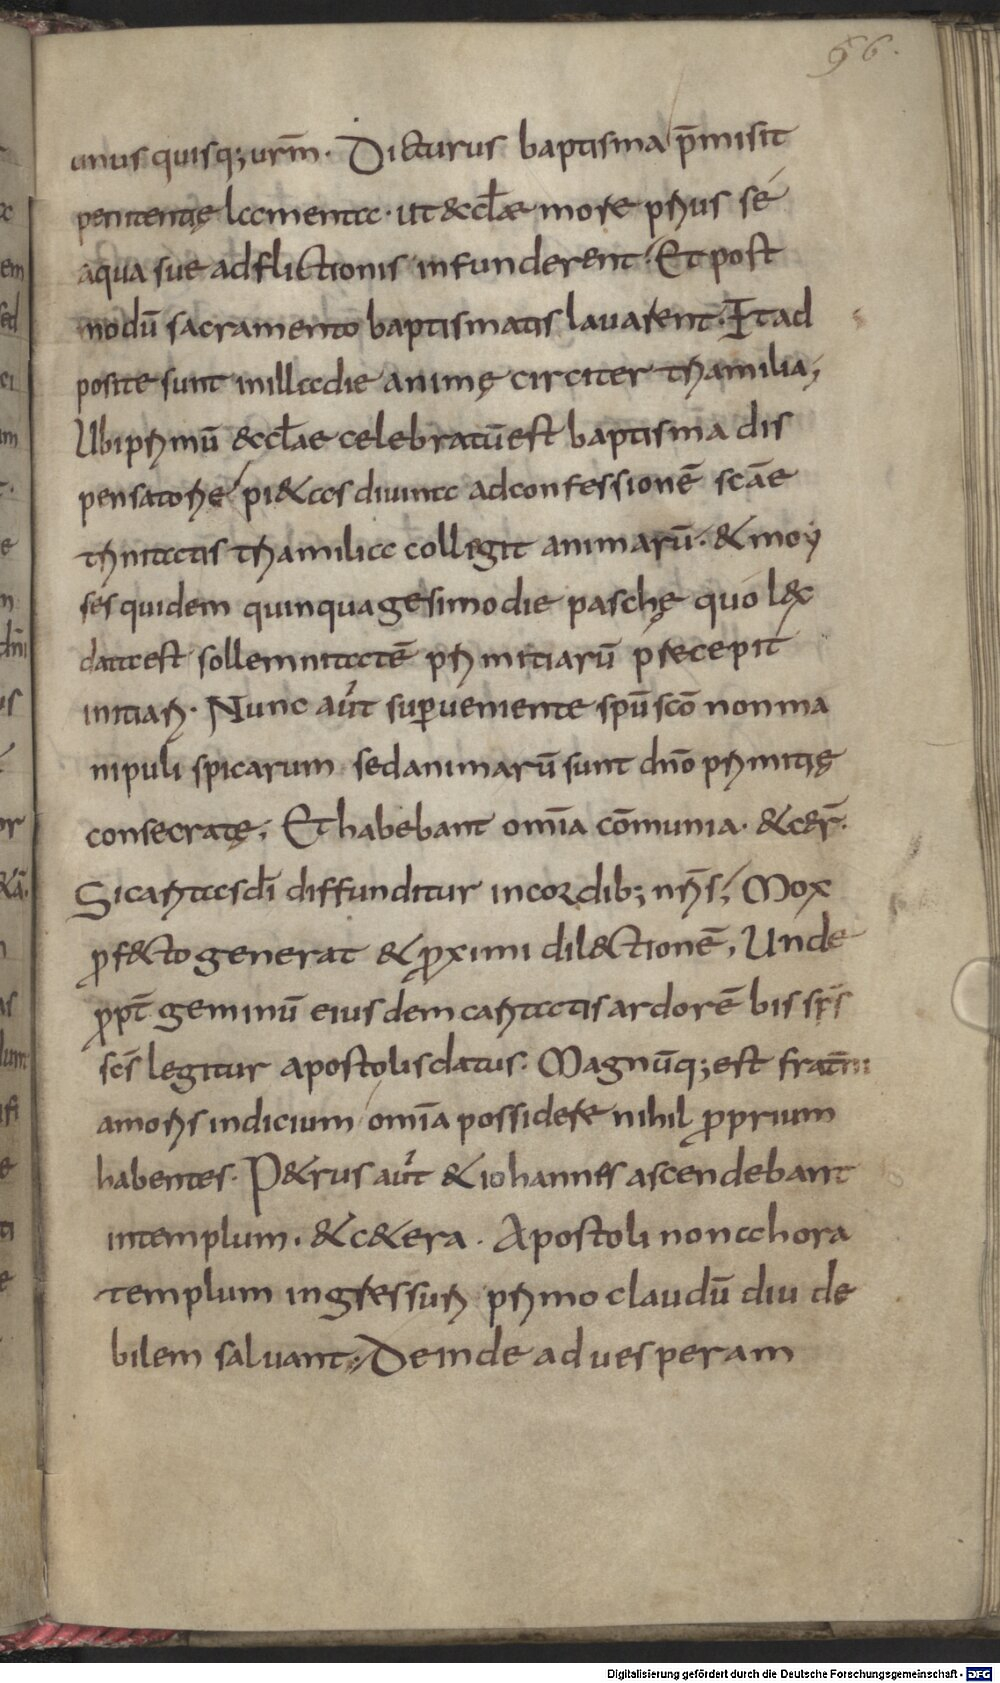 56.
unus quisq; urm̄. Dicturus baptisma p̄misit
penitentię lamenta. ut &ccl̄ae more prius se
aqua sue adflictionis infunderent. Et post
modū sacramento baptismatis lavarent. Et ad
posite sunt in illa die animę circiter tria milia;
Ubi primū &ccl̄ae celebratū est baptisma dis
pensatore pi&as divina ad confessionē scāe
trinitatis tria milia collegit animarū. & moy
ses quidem quinquagesimo die paschę quo l&x
data est sollemnitatē primitiarū precepit
initiari. Nunc aūt superveniente sp̄u sc̄o non ma
nipuli spicarum sed animarū sunt dn̄o primitię
consecratę; Et habebant om̄ia cōmunia. & c&r̄.
Si caritas dī diffunditur in cordib; nr̄is; Mox
prof&to generat & proximi dil&tionē, Unde
propt̄ geminū eiusdem caritatis ardorē bis sp̄s
sc̄s legitur apostolis datus. Magnūq; est frat̄ni
amoris indicium om̄ia possidere nihil proprium
habentes. P&rus aūt & iohannes ascendebant
in templum. & c&era. Apostoli nona hora
templum ingressuri primo claudū diu de
bilem salvant; Deinde ad vesperam
Digitalisierung gefördert durch die Deutsche Forschungsgemeinschaft - DFG